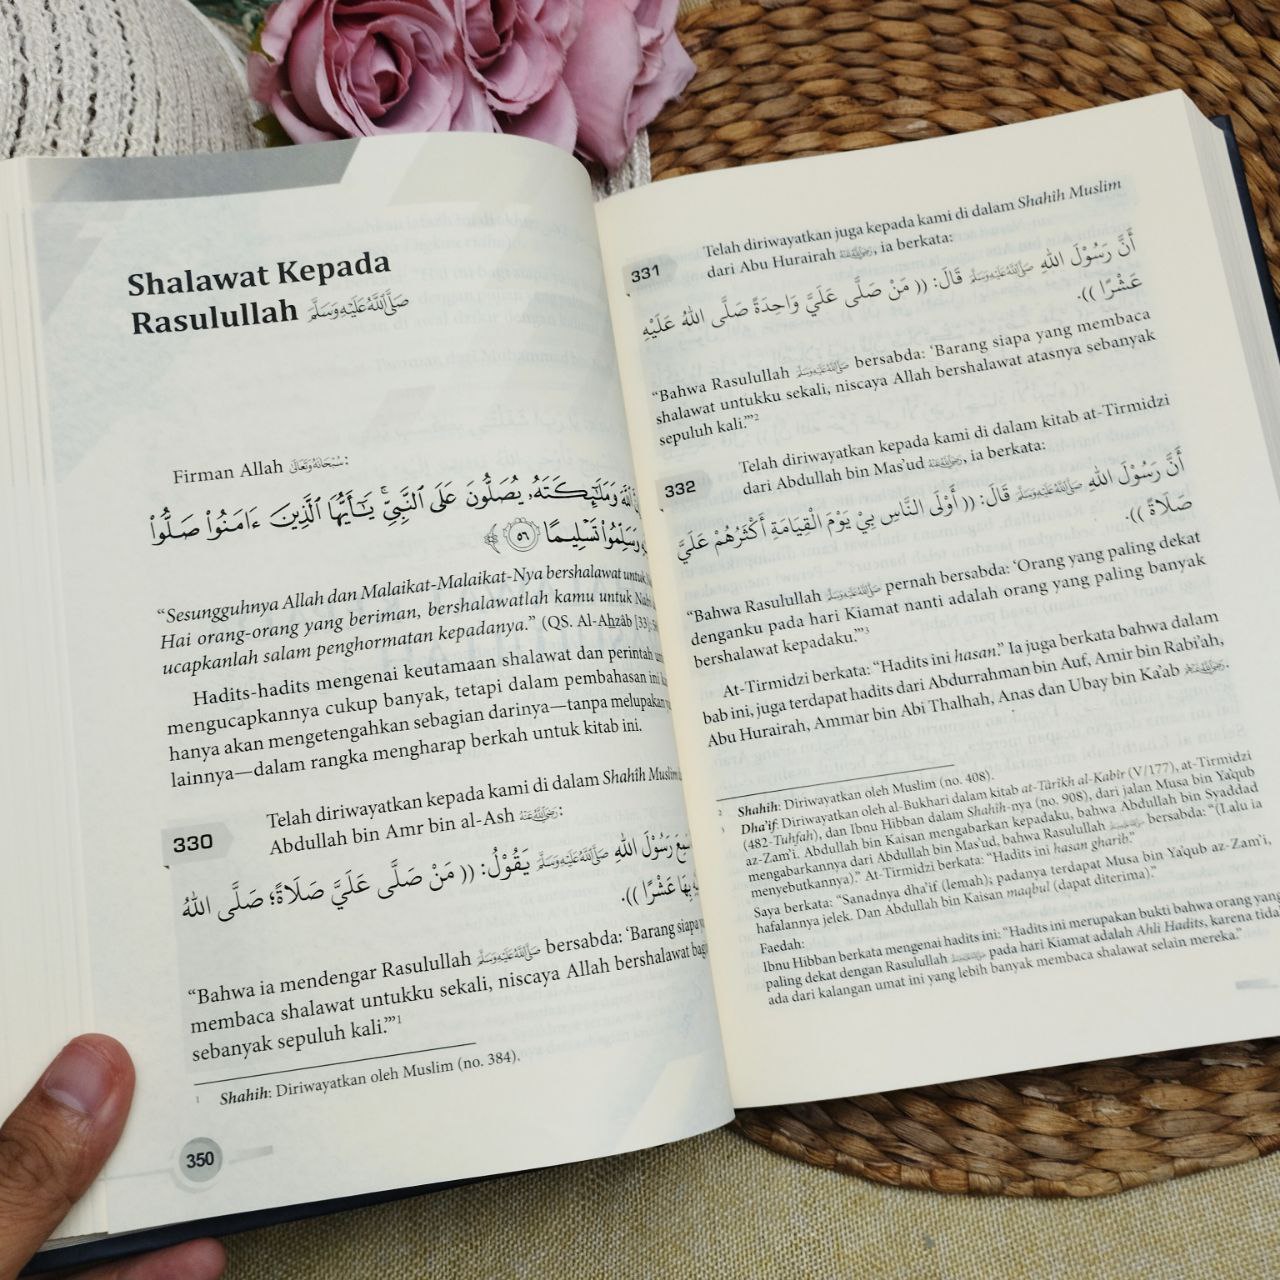 Shalawat Kepada
Rasulullah ﷺ
Firman Allah سُبْحَانَهُ وَتَعَالَى:
ٱللَّهَ وَمَلَـٰٓئِكَتَهُۥ يُصَلُّونَ عَلَى ٱلنَّبِىِّ ۚ يَـٰٓأَيُّهَا ٱلَّذِينَ ءَامَنُوا۟ صَلُّوا۟
وَسَلِّمُوا۟ تَسْلِيمًا ﴿٥٦﴾
“Sesungguhnya Allah dan Malaikat-Malaikat-Nya bershalawat untuk
Hai orang-orang yang beriman, bershalawatlah kamu untuk Nabi
ucapkanlah salam penghormatan kepadanya.” (QS. Al-Ahzâb [33]:
Hadits-hadits mengenai keutamaan shalawat dan perintah
mengucapkannya cukup banyak, tetapi dalam pembahasan ini
hanya akan mengetengahkan sebagian darinya—tanpa melupakan
lainnya—dalam rangka mengharap berkah untuk kitab ini.
330
Telah diriwayatkan kepada kami di dalam Shahîh Muslim
Abdullah bin Amr bin al-Ash رضي الله عنه:
رَسُوْلَ اللهِ ﷺ يَقُوْلُ: (( مَنْ صَلَّى عَلَيَّ صَلَاةً؛ صَلَّى اللهُ
بِهَا عَشْرًا )).
“Bahwa ia mendengar Rasulullah ﷺ bersabda: ‘Barang siapa
membaca shalawat untukku sekali, niscaya Allah bershalawat
sebanyak sepuluh kali.’”1
1 Shahih: Diriwayatkan oleh Muslim (no. 384).
350
331
Telah diriwayatkan juga kepada kami di dalam Shahîh Muslim
dari Abu Hurairah رضي الله عنه, ia berkata:
أَنَّ رَسُوْلَ اللهِ ﷺ قَالَ: (( مَنْ صَلَّى عَلَيَّ وَاحِدَةً صَلَّى اللهُ عَلَيْهِ
عَشْرًا )).
“Bahwa Rasulullah ﷺ bersabda: ‘Barang siapa yang membaca
shalawat untukku sekali, niscaya Allah bershalawat atasnya sebanyak
sepuluh kali.’”2
332
Telah diriwayatkan kepada kami di dalam kitab at-Tirmidzi
dari Abdullah bin Mas’ud رضي الله عنه, ia berkata:
أَنَّ رَسُوْلَ اللهِ ﷺ قَالَ: (( أَوْلَى النَّاسِ بِيْ يَوْمَ الْقِيَامَةِ أَكْثَرُهُمْ عَلَيَّ
صَلَاةً )).
“Bahwa Rasulullah ﷺ pernah bersabda: ‘Orang yang paling dekat
denganku pada hari Kiamat nanti adalah orang yang paling banyak
bershalawat kepadaku.’”3
At-Tirmidzi berkata: “Hadits ini hasan.” Ia juga berkata bahwa dalam
bab ini, juga terdapat hadits dari Abdurrahman bin Auf, Amir bin Rabi’ah,
Abu Hurairah, Ammar bin Abi Thalhah, Anas dan Ubay bin Ka’ab
2 Shahih: Diriwayatkan oleh Muslim (no. 408).
3 Dha’if: Diriwayatkan oleh al-Bukhari dalam kitab at-Târikh al-Kabîr (V/177), at-Tirmidzi
(482-Tuhfah), dan Ibnu Hibban dalam Shahih-nya (no. 908), dari jalan Musa bin Ya’qub
az-Zam’i. Abdullah bin Kaisan mengabarkan kepadaku, bahwa Abdullah bin Syaddad
mengabarkannya dari Abdullah bin Mas’ud, bahwa Rasulullah ﷺ bersabda: “(Lalu ia
menyebutkannya).” At-Tirmidzi berkata: “Hadits ini hasan gharib.”
Saya berkata: “Sanadnya dha’if (lemah); padanya terdapat Musa bin Ya’qub az-Zam’i,
hafalannya jelek. Dan Abdullah bin Kaisan maqbul (dapat diterima).”
Faedah:
Ibnu Hibban berkata mengenai hadits ini: “Hadits ini merupakan bukti bahwa orang yang
paling dekat dengan Rasulullah ﷺ pada hari Kiamat adalah Ahli Hadits, karena tidak
ada dari kalangan umat ini yang lebih banyak membaca shalawat selain mereka.”